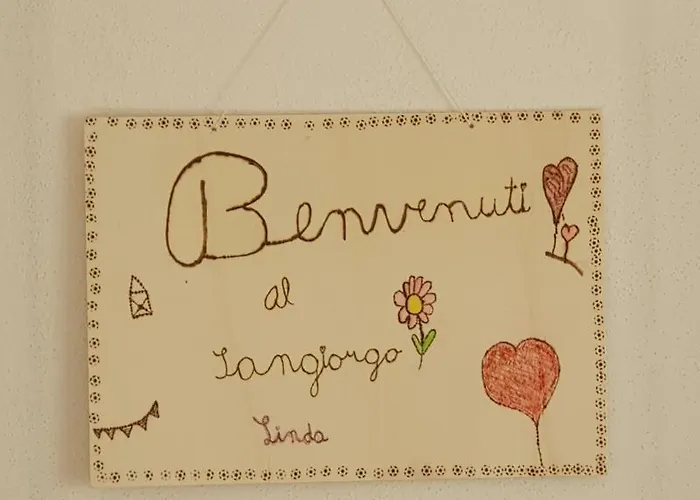 Benvenuti
al
Sangiorgo
Linda